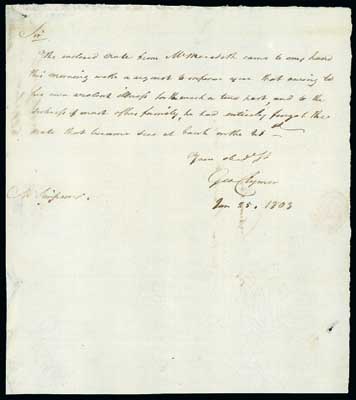 Sir
The enclosed note from Mr Meredith came to my hand
this morning with a request to inform you that owing to
his own violent illness for the week or two past, and to the
sickness of most of his family, he had entirely forgot the
note that became due at bank on the 21st
Your obedt St
Geo Clymer
Jan 25. 1803
Mr Simpson.